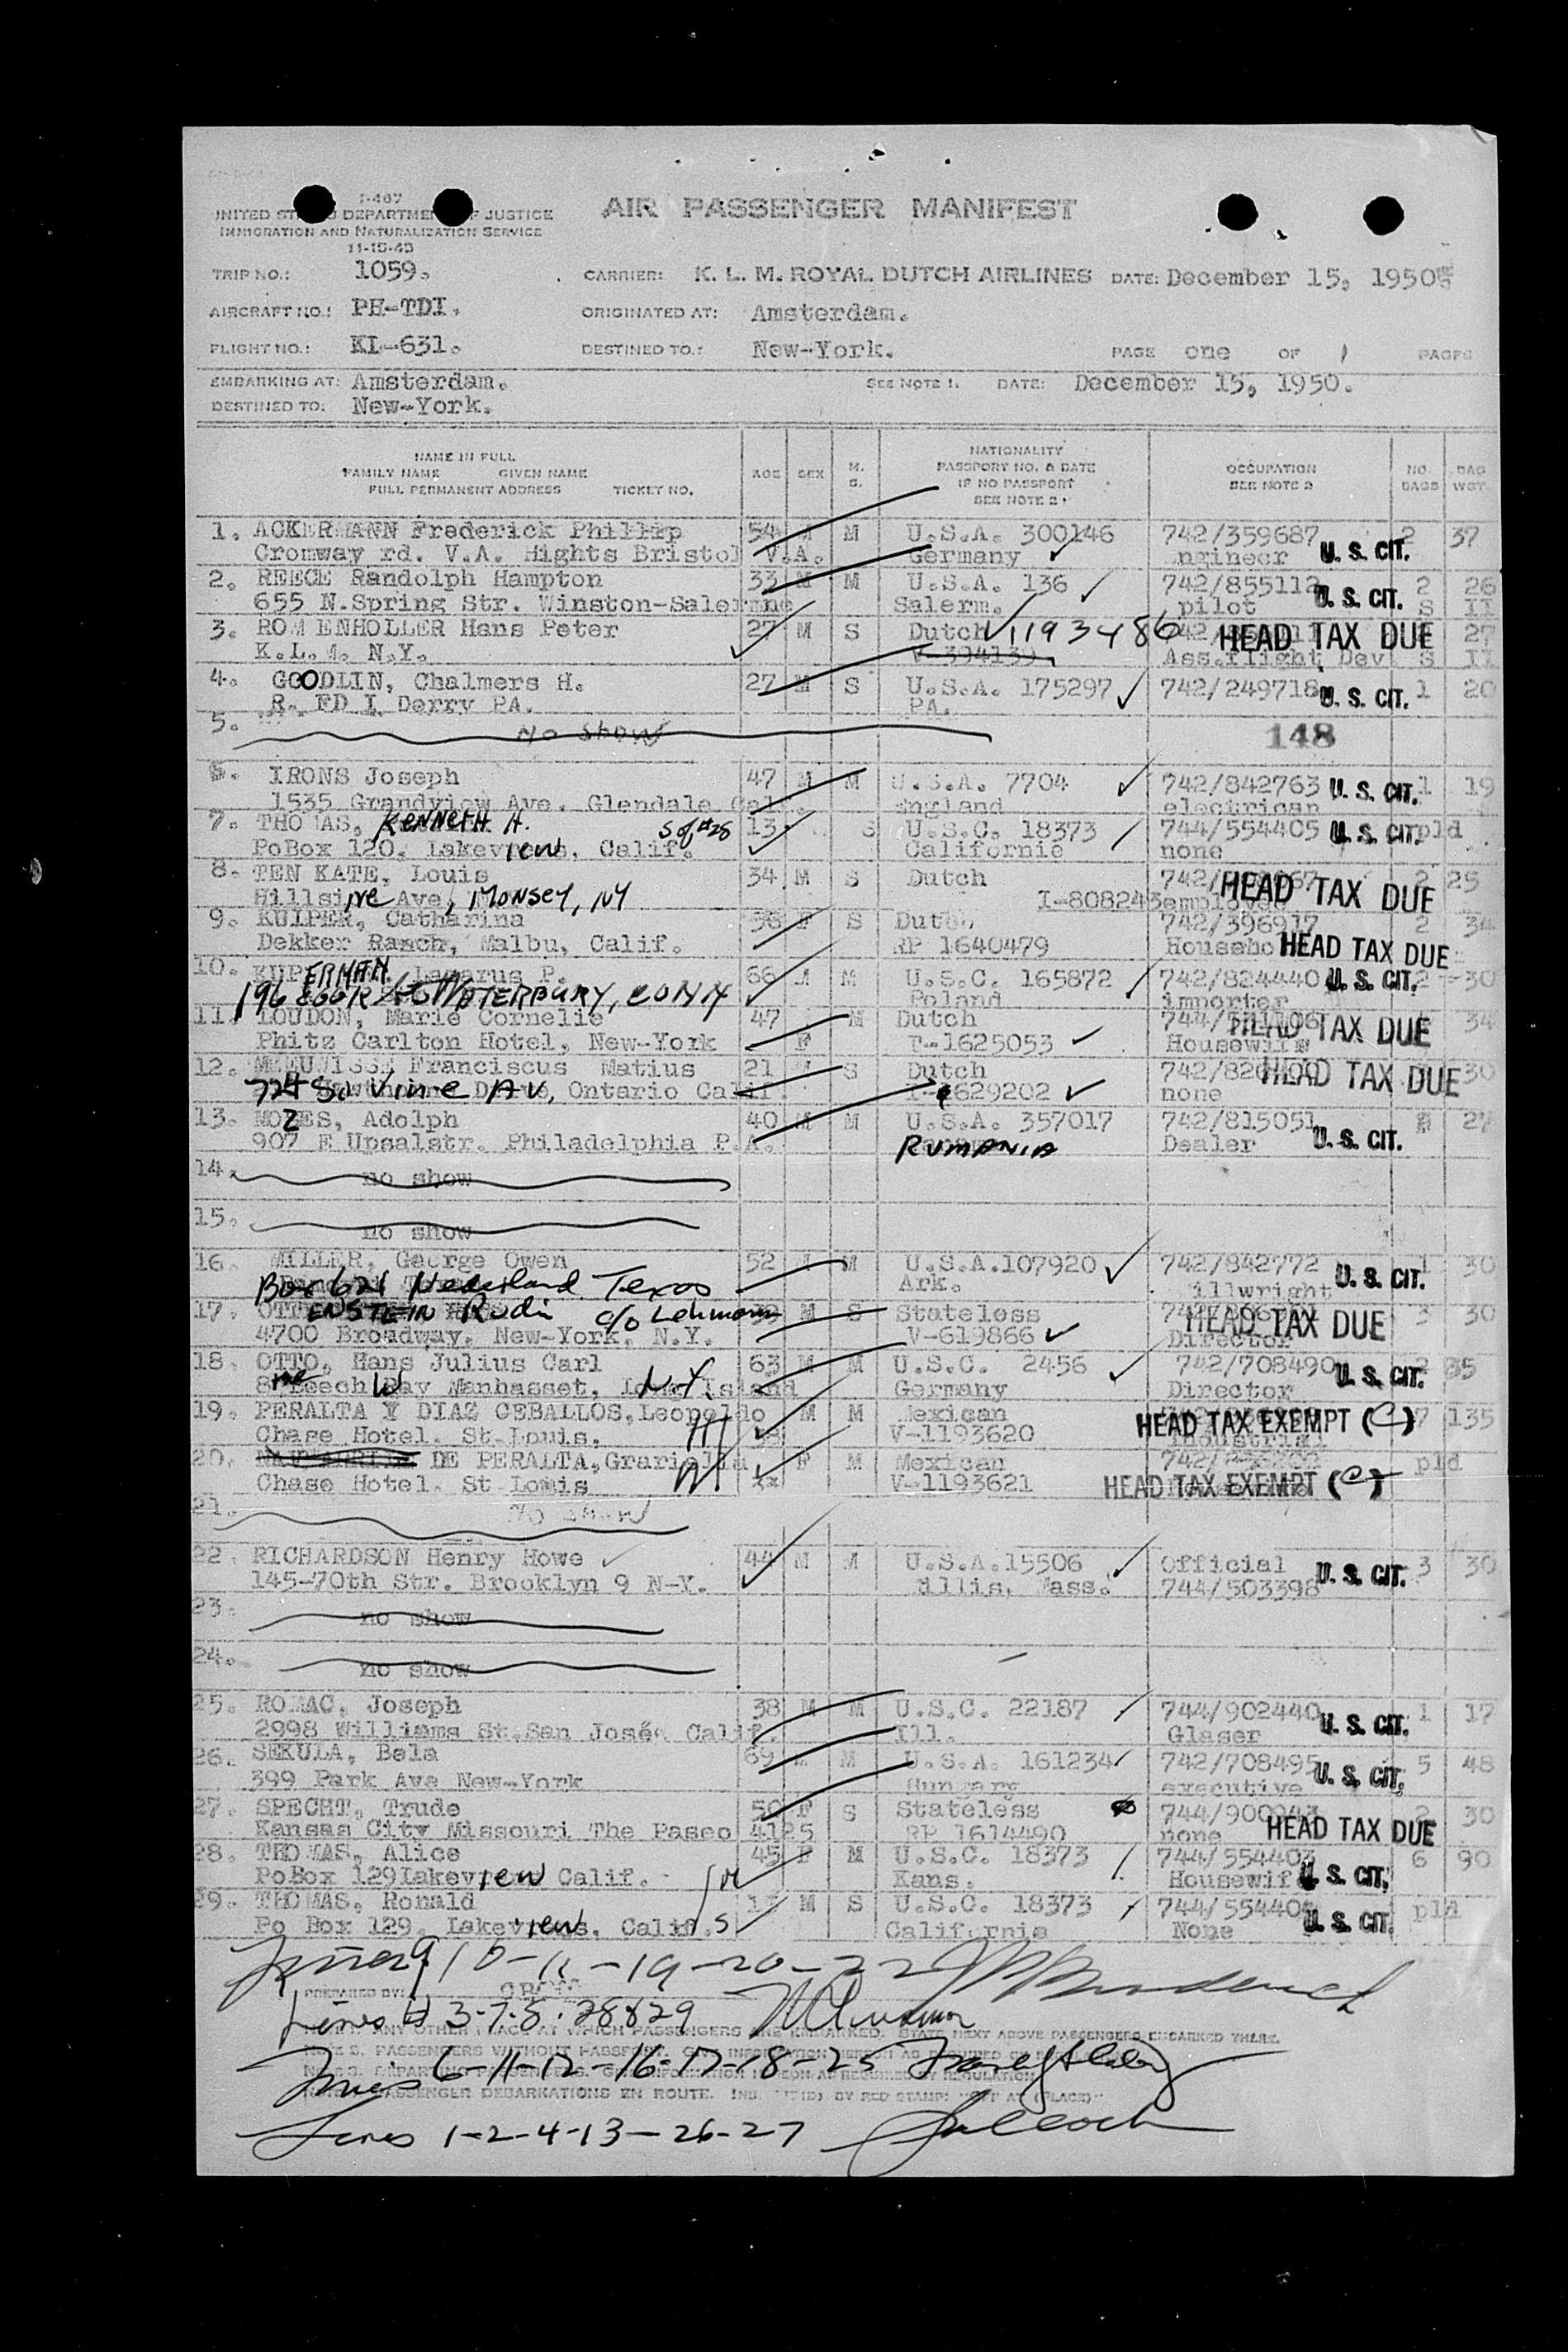 I-467
UNITED STATES DEPARTMENT OF JUSTICE
IMMIGRATION AND NATURALIZATION SERVICE
11-15-45
AIR PASSENGER MANIFEST
TRIP NO.: 1059. CARRIER: K. L. M. ROYAL DUTCH AIRLINES DATE: December 15, 1950
AIRCRAFT NO.: PH-TDI. ORIGINATED AT: Amsterdam.
FLIGHT NO.: KL-631. DESTINED TO.: New-York. PAGE one OF 1 PAGES
EMBARKING AT: Amsterdam. SEE NOTE 1. DATE: December 15, 1950.
DESTINED TO: New-York.
NAME IN FULL
FAMILY NAME GIVEN NAME
FULL PERMANENT ADDRESS TICKET NO.
AGE SEX M. S.
NATIONALITY
PASSPORT NO. & DATE
IF NO PASSPORT
SEE NOTE 2
OCCUPATION
SEE NOTE 2
NO. BAGS BAG WGT.
1. ACKERMANN Frederick Phillip 54 M M U.S.A. 300146 742/359687 2 37
Cromway rd. V.A. Hights Bristol V.A. Germany U. S. CIT.
2. REECE Randolph Hampton 33 M M U.S.A. 136 742/855112 2 26
655 N.Spring Str. Winston-Salem Salerm. pilot U. S. CIT. S II
3. ROM ENHOLLER Hans Peter 27 M S Dutch 1193486 HEAD TAX DUE 27
K.L.M. N.Y. V-394139 Ass.flight Dev S II
4. GOODLIN, Chalmers H. 27 M S U.S.A. 175297 742/249718 U. S. CIT. 1 20
R. FD I Derry PA. PA.
5. No show 148
6. IRONS Joseph 47 M M U.S.A. 7704 742/842763 U. S. CIT. 1 19
1535 Grandview Ave. Glendale Cal. England electrican
7. THOMAS, KENNETH H. S of #28 13 S U.S.C. 18373 744/554405 U. S. CIT. pld
PoBox 120, Lakeview, Calif. Californie none
8. TEN KATE, Louis 34 M S Dutch HEAD TAX DUE 2 25
Hillsine Ave, MONSEY, NY I-808243 employee
9. KUIPER, Catharina 56 F S Dutch 742/396917 2 34
Dekker Ranch, Malbu, Calif. RP 1640479 Househo HEAD TAX DUE
10. KUPERMAN Lazarus P. 66 M M U.S.C. 165872 742/824440 U. S. CIT. 2 30
WATERBURY, CONN Poland importer
11. LOUDON, Marie Cornelie 47 F M Dutch HEAD TAX DUE 34
Phitz Carlton Hotel, New-York T-1625053 Housewife
12. MEEUWISSE Franciscus Matius 21 S Dutch HEAD TAX DUE 30
724 So Vine AV, Ontario Calif. 1629202 none
13. MOZES, Adolph 40 M M U.S.A. 357017 742/815051 27
907 E Upsalstr. Philadelphia P.A. RUMANIA Dealer U. S. CIT.
14. no show
15. no show
16. MILLER, George Owen 52 M M U.S.A.107920 742/842772 1 30
Box 621 Nederland Texas Ark. illwright U. S. CIT.
17. OTTENSTEIN Rudi c/o Lehmann 39 M S Stateless HEAD TAX DUE 3 30
4700 Broadway. New-York, N.Y. V-619866 Director
18. OTTO, Hans Julius Carl 63 M M U.S.C. 2456 742/708490 U. S. CIT. 2 35
Manhasset, N.Y. Germany Director
19. PERALTA Y DIAZ CEBALLOS, Leopoldo M M Mexican HEAD TAX EXEMPT (C) 7 135
Chase Hotel. St Louis, 39 V-1193620 industrial
20. DE PERALTA, Grariella F M Mexican pld
Chase Hotel. St Louis V-1193621 HEAD TAX EXEMPT (C)
21. No show
22. RICHARDSON Henry Howe 44 M M U.S.A.15506 Official U. S. CIT. 3 30
145-70th Str. Brooklyn 9 N-Y. Millis, Mass. 744/503398
23. no show
24. no show
25. ROMAC, Joseph 38 M M U.S.C. 22187 744/902440 U. S. CIT. 1 17
2998 Williams St. San José, Calif. Ill. Glaser
26. SEKULA, Bela 69 M M U.S.A. 161234 742/708495 U. S. CIT. 5 48
399 Park Ave New-York Hungary executive
27. SPECHT, Trude 50 F S Stateless 744/900943 2 30
Kansas City Missouri The Paseo 4125 RP 1614490 none HEAD TAX DUE
28. THOMAS, Alice 45 F M U.S.C. 18373 744/554403 6 90
PoBox 129 Lakeview Calif. Kans. Housewife U. S. CIT.
29. THOMAS, Ronald 13 M S U.S.C. 18373 744/55440 pld
Po Box 129, Lakeview, Calif. California None U. S. CIT.
10-11-19-20-22
PREPARED BY:
Lines # 3-7-8-28&29
Lines 6-11-12-16-17-18-25
Lines 1-2-4-13-26-27